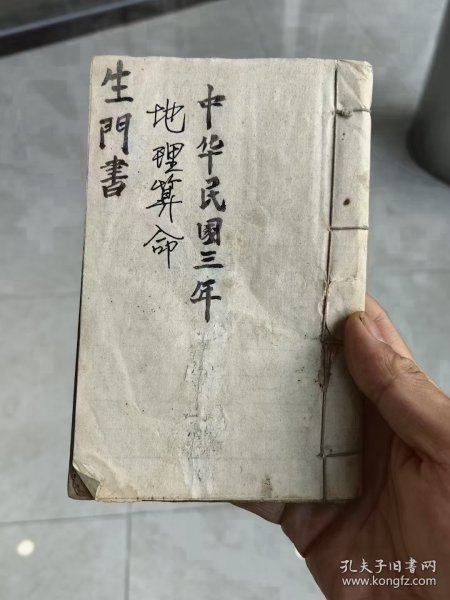 中华民国三年
地理算命
生門書
孔夫子旧书网
www.kongfz.com